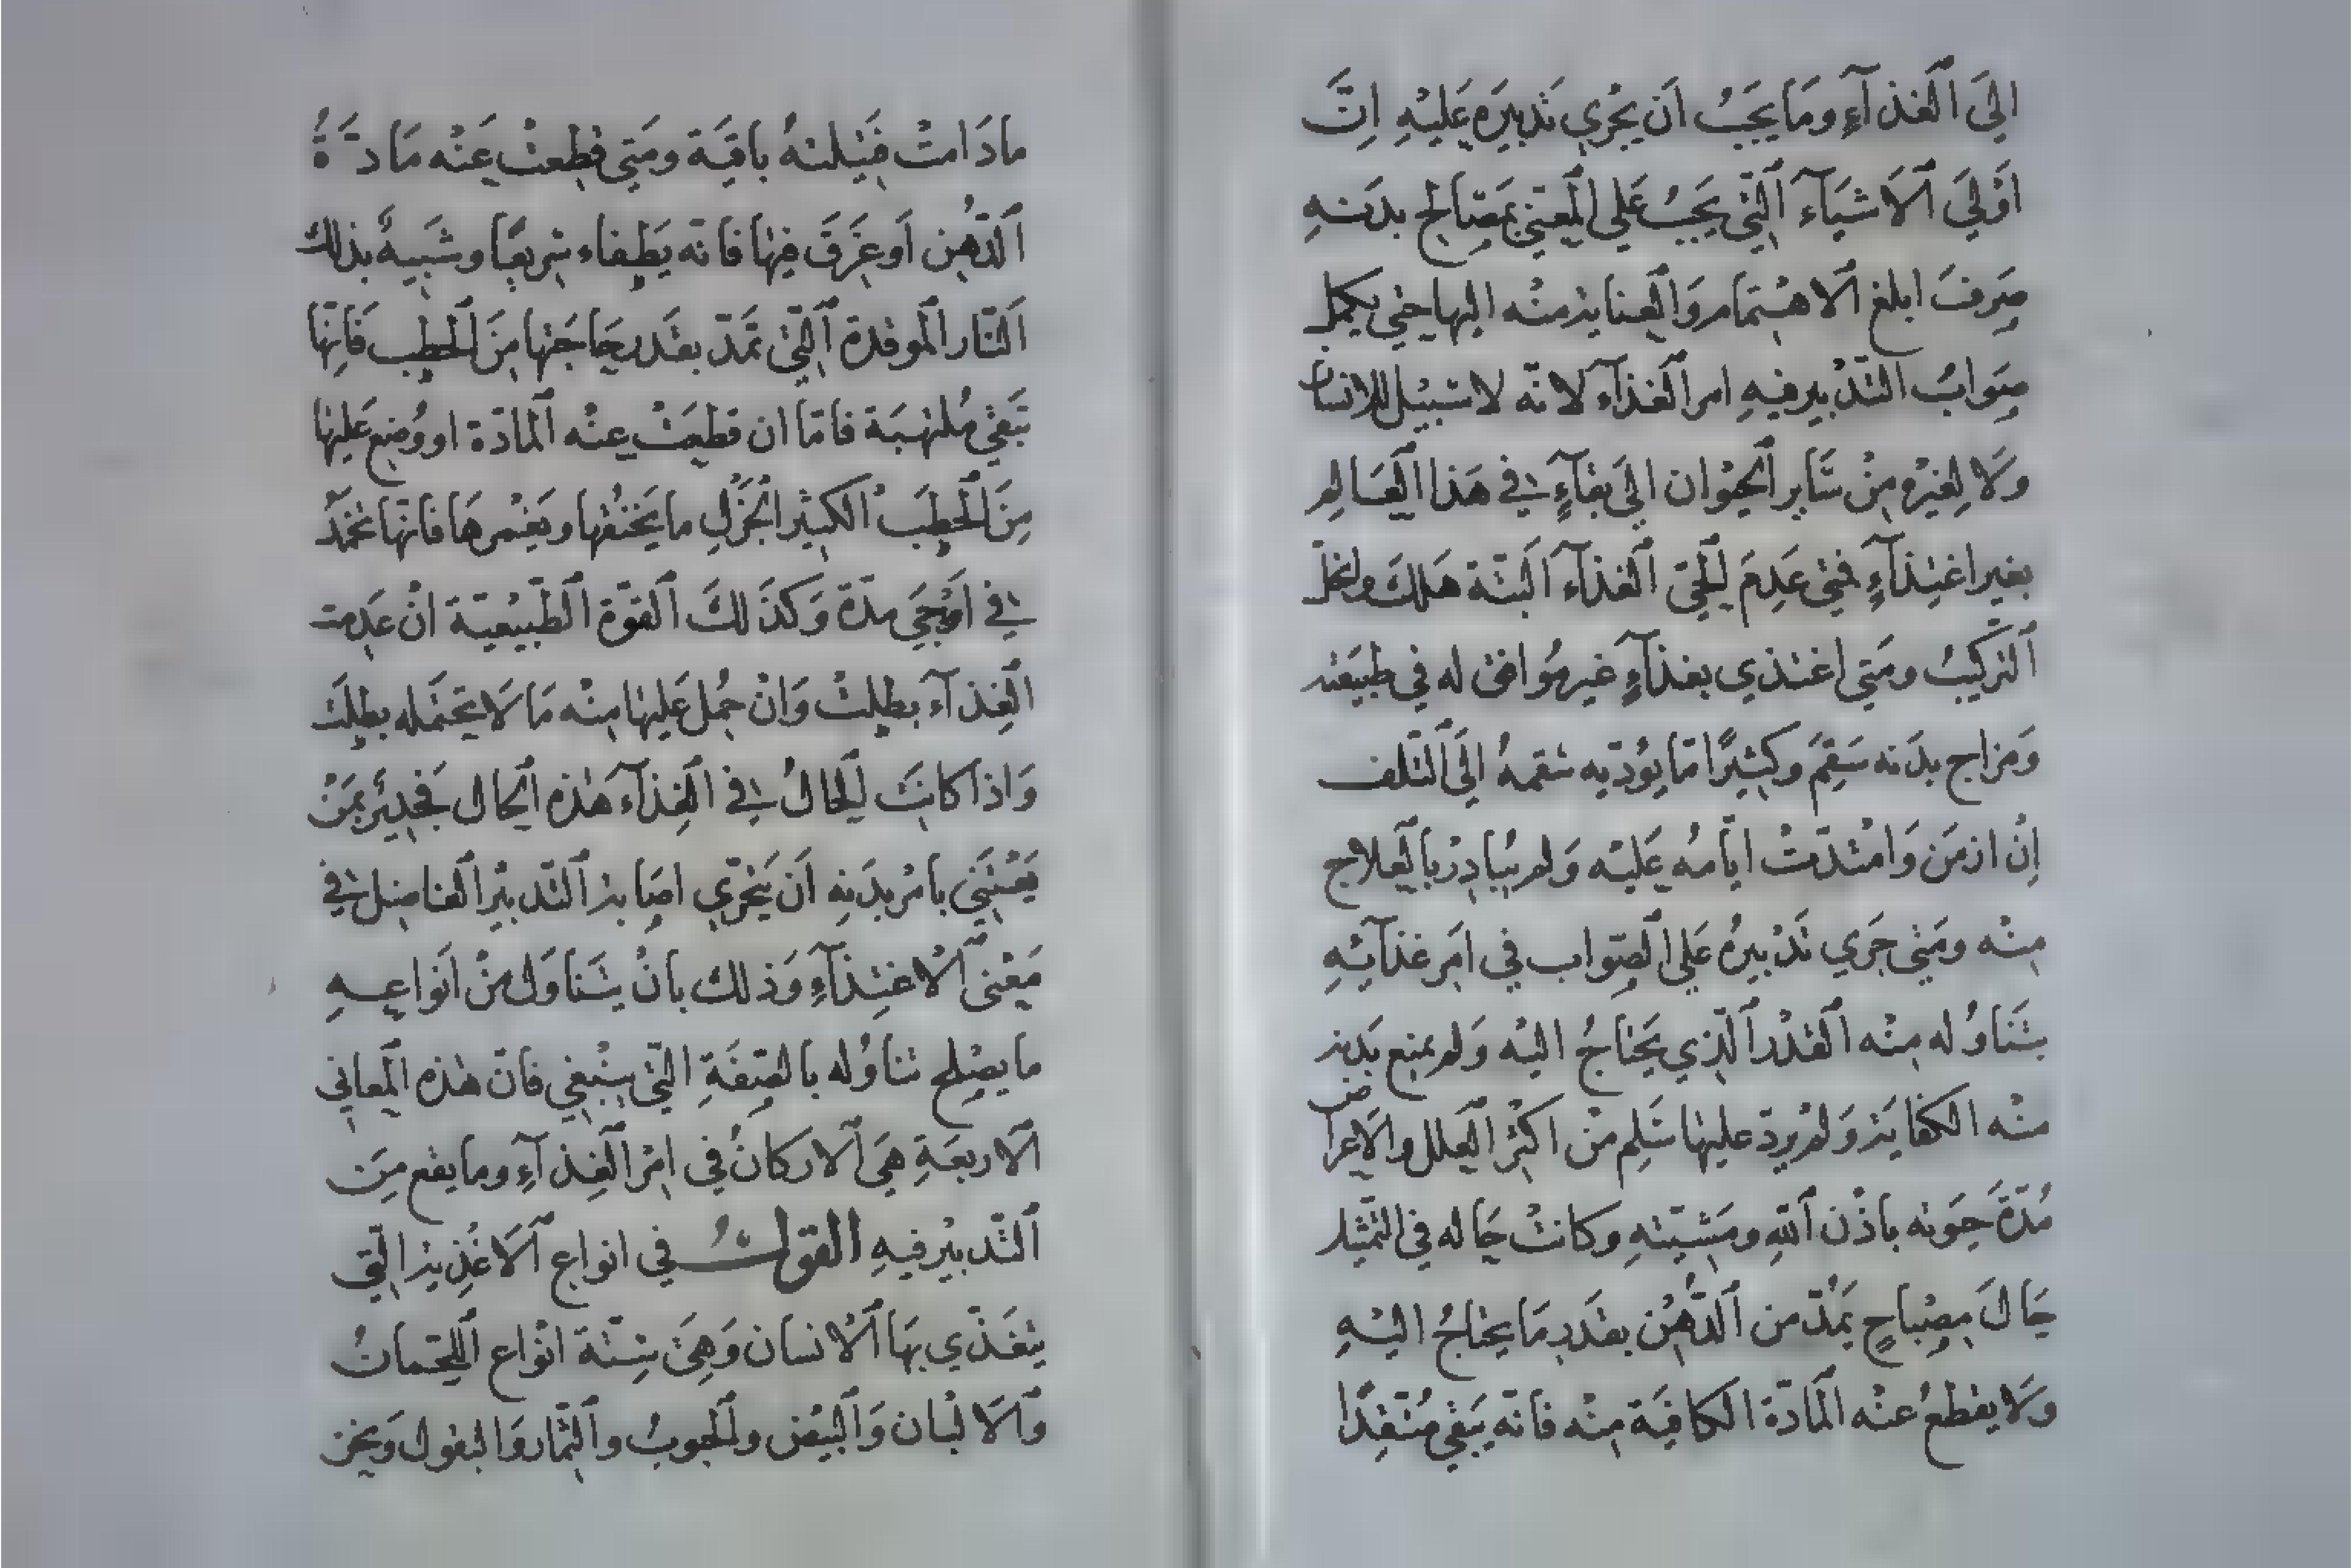 الِيَ ٱلغذآءِ ومَا يجَبُ اَن يجُرِي تَدبيَره عَليْهِ اِنَّ
اَوَّليَ ٱلاَشيَآءَ ٱلتّيِ يَجبُ عَلي المْعتنيِ بمَصَالح بدَنهِ
صَرفَ ابلغ ٱلاهْتمام وَالعنايذ منْه اليها حتي يكمل
صَوابُ التّدْبير فيهِ امر ٱلغذآء لانّه لا سَبيْل للانسان
وَلا لِغيْره مِنْ سَّاير ٱلحيْوان اليَ بقآءٍ في هَذا ٱلعَالم
بغير اغتذآءٍ فمتي عَدِمَ ٱلحيّ ٱلغذآء اَلبتّة هَلك وانحلّ
ٱلتركيبُ ومَتي اغتذي بغذآءٍ غير مُوافق له في طبيعَته
وَمزاج بدَنه سَقِمَ وكثيرًا مّا يؤدّيه سَقمهُ اليَ ٱلتّلف
اِنْ ازمَن وَامْتدّتْ ايّامهُ عَليْه وَلم يبُادِرْ بالعلاج
منْه ومَتي جَري تَدْبيرهُ عَلي الصّواب في امَر غذآئهِ
بتَناوُله مِنْه ٱلقدْر ٱلذّي يَحتاجُ اليْه وَلم يمنع بَدنه
منْه الكفايَذ وَلم يزد عليها سَلِم منْ اكثْر العَلل والاعراض
مُدّةَ حيَوته باذْن ٱللهِ ومَشيّتهِ وكانتْ حَاله في التمّثيل
حَالَ مصْباحٍ يَمُدّ من ٱلدُّهْن بقدَر مَا يحتاجُ اليْهِ
وَلا يقطعُ عنْه ٱلمَادّة الكافيَة منْه فانّه يبَقي مُتّقِدًا
مادَامتْ فتَيلتهُ باقيَة ومَتي قطِعتْ عَنْه مَادّةُ
ٱلدّهْن اَو غرَق فيْها فانّه يَطفاء سَريعًا وشَبيهٌ بذلك
اَلنّار ٱلموقدة ٱلتّيْ تمَدّ بقَدر حَاجَتها مِنَ ٱلحطب فَانِهّا
تَبقي مُلتهبَة فامّا ان قطعَتْ عنْه ٱلمادّة او وُضِع عَليها
مِنَ ٱلحطَب ٱلكثيْر ٱلجزْلِ ما يَخنُقها ويَغْمرهَا فانّها تخَمدُ
في اَوْحَي مدّة وَكذَلكَ ٱلقوّة ٱلطّبيْعيّة انْ عَدِمت
ٱلغِذآء بطلتْ وَانْ حُمل عَليها منْه مَا لَا تحَتمَله بطلَت
وَاذا كانَت ٱلحالُ في ٱلغِذآء هَذه ٱلحال فجَديْرٌ بمَنْ
يَعْتَني بامْر بدَنِه اَن يَتحرّي اصَابذ ٱلتّدبيْر ٱلفاضل في
مَعْني ٱلاغتِذآءِ وَذلك بانْ يتَناوَل منْ اَنواعهِ
ما يصْلح تناوُله بالصّفَةِ التّي ينْبغي فانّ هذه ٱلمعاني
ٱلاربعَةِ هيَ ٱلاركانُ في امْر ٱلغِذآءِ وما يقع مِنَ
ٱلتّدبيْر فيهِ القول في انواع ٱلاَغْذيذ التّي
يتغَذّي بهَا ٱلانسان وَهيَ ستّة انْواع ٱللحّمانُ
وَٱلالبْان وَٱلبيْض وٱلحبوبُ وٱلثمّار وَالبقول وَنحن